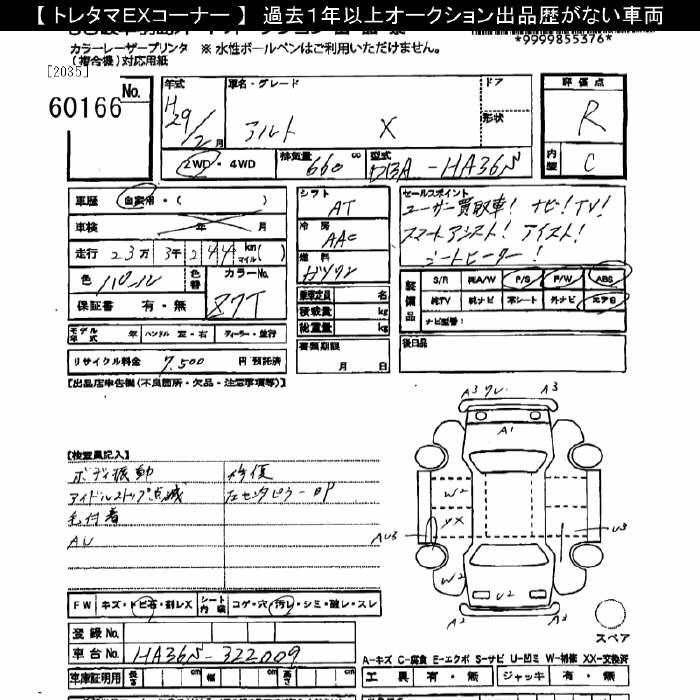 【 トレタマEXコーナー 】 過去1年以上オークション出品歴がない車両
カラーレーザープリンタ ※ 水性ボールペンはご利用いただけません。
*9999855376*
(複合機)対応用紙
[2035]
No.
60166
年式
H29/2月
車名・グレード
アルト X
ドア
形状
評価点
R
2WD・4WD
排気量 660 cc
型式 DBA-HA36N
内装 C
車歴 自家用・( )
車検 年 月
走行 23万3千244 km マイル( )
色
色替
カラーNo.
Z7T
保証書 有・無
シフト
AT
冷房
AAC
燃料
ガソリン
乗車定員 名
積載量 kg
総重量 kg
書類期限
月 日
セールスポイント
ユーザー買取車! ナビ!TV!
スマートアシスト! アイスト!
シートヒーター!
装備品
S/R 純A/W P/S P/W ABS
純TV 純ナビ 革シート 外ナビ エアB
ナビ型番:
後日品
モデル年式 年 ハンドル 左・右 ディーラー・並行
リサイクル料金 7,500 円 預託済
【出品店申告欄(不良箇所・欠品・注意事項等)】
【検査員記入】
ボディ振動 修復
アイドルストップ点滅 左センタピラーBP
毛付着
AU
A3 ワレ A3
A1
W2
YX
AU3
U3
W2
U2
A2 A2
スペア
FW キズ・トビ石・割レX シート内張 コゲ・穴・汚レ・シミ・破レ・スレ
登録No.
車台No. HA36N-322009
車庫証明用 長さ cm 幅 cm 高さ cm
A-キズ C-腐食 E-エクボ S-サビ U-凹ミ W-補修 XX-交換済
工具 有・無 ジャッキ 有・無